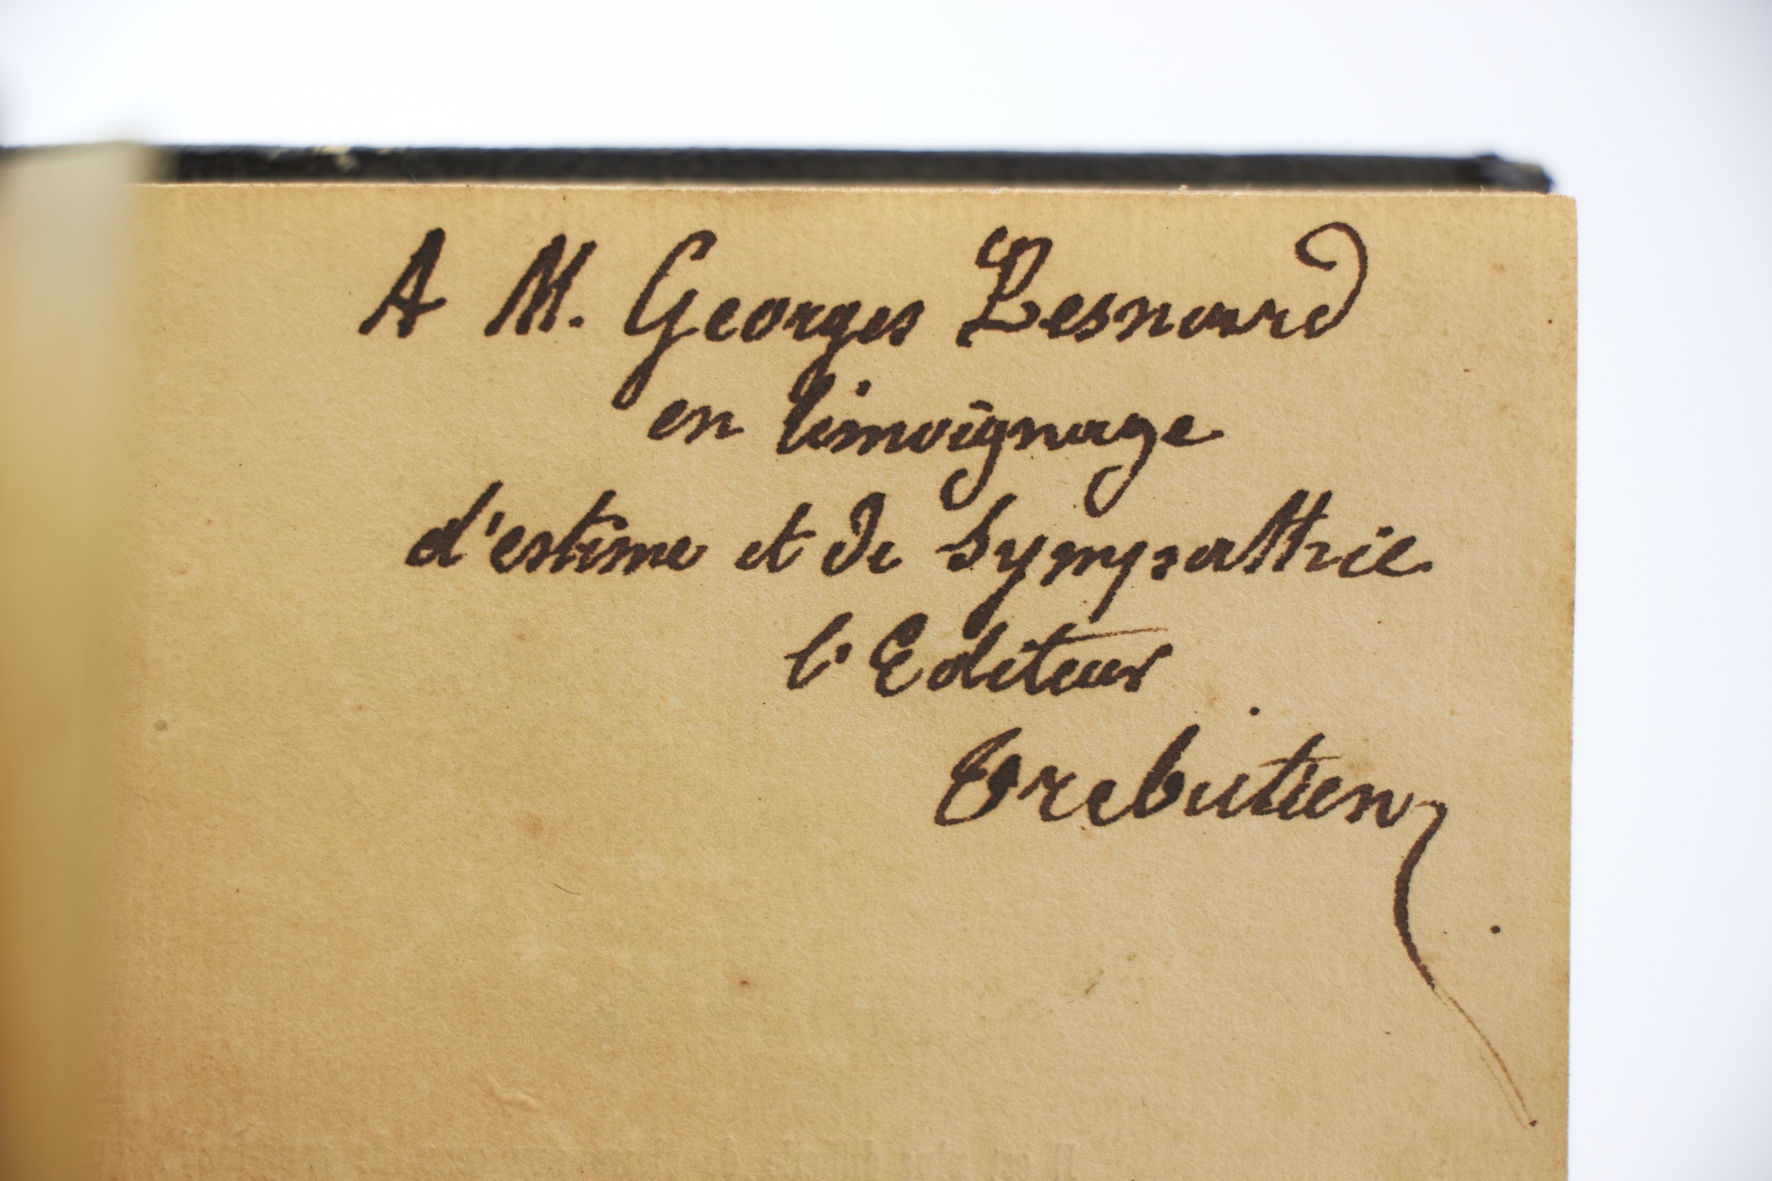 A M. Georges Lesnard
en témoignage
d'estime et de Sympathie
l'Editeur
Trebutien